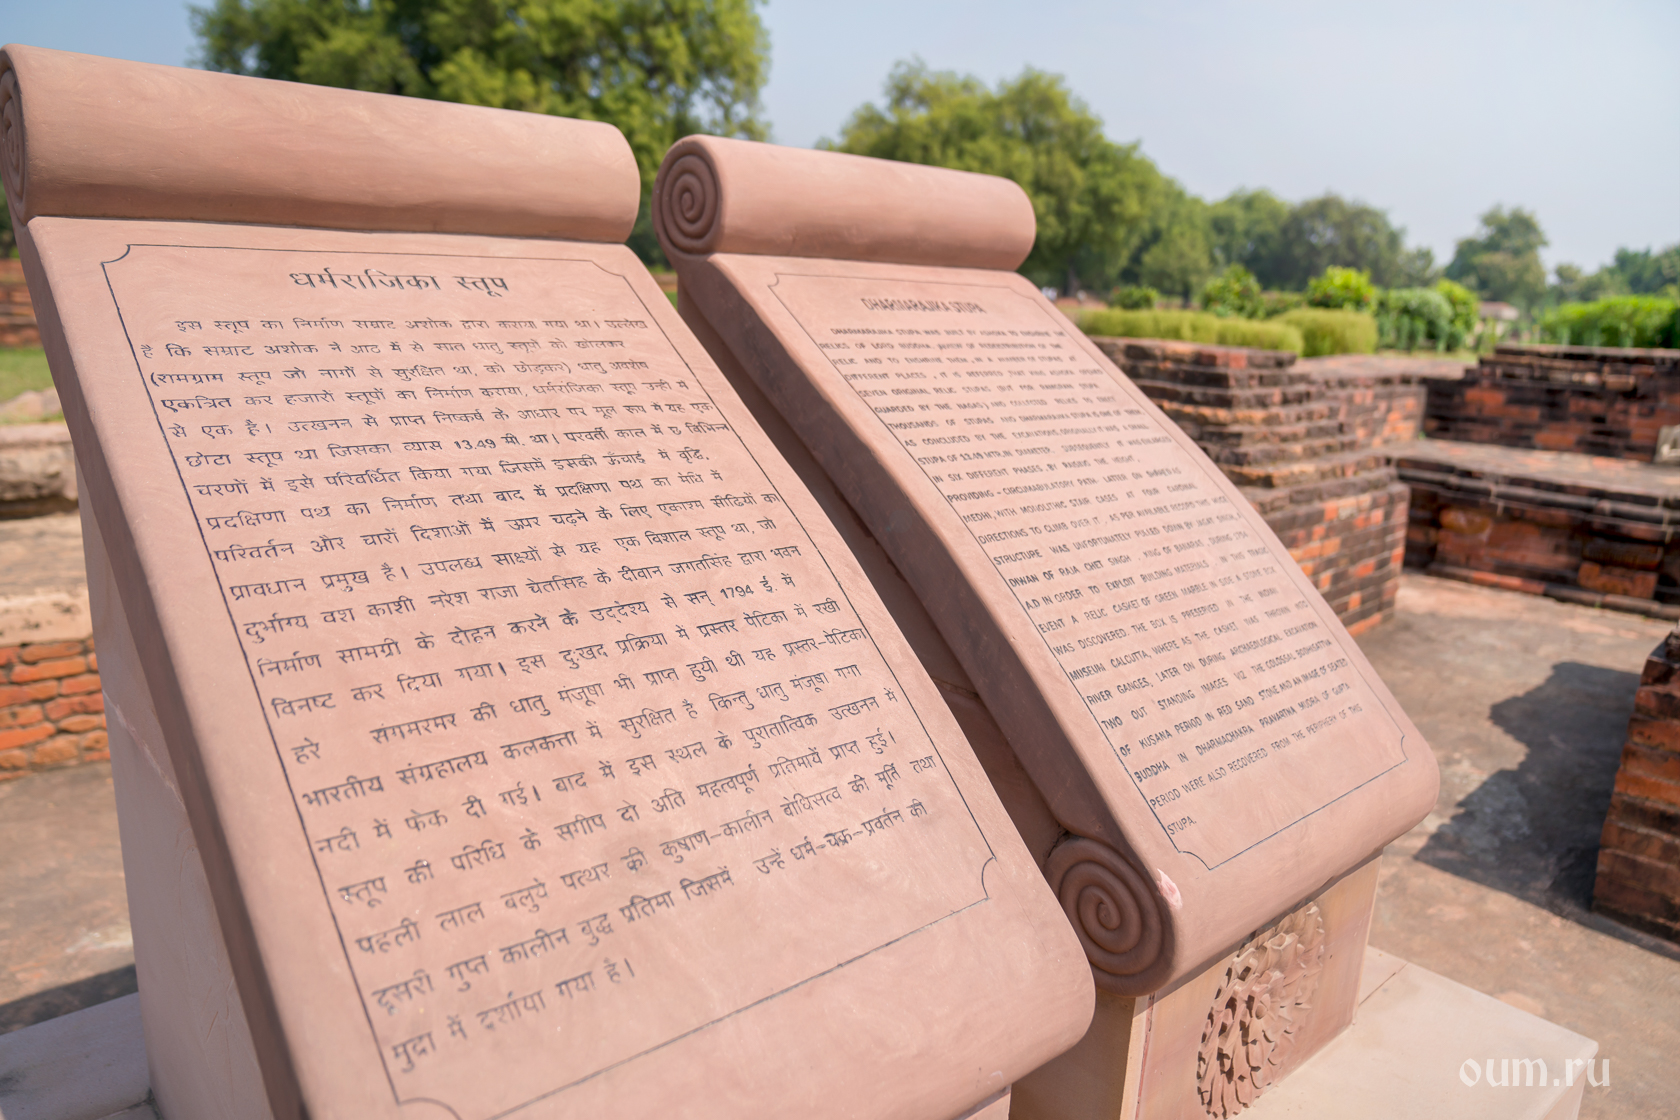 धर्मराजिका स्तूप
इस स्तूप का निर्माण सम्राट अशोक द्वारा कराया गया था। उल्लेख
है कि सम्राट अशोक ने आठ में से सात धातु स्तूपों को खोलकर
(रामग्राम स्तूप जो नागों से सुरक्षित था, को छोड़कर) धातु अवशेष
एकत्रित कर हजारों स्तूपों का निर्माण कराया, धर्मराजिका स्तूप उन्ही में
से एक है। उत्खनन से प्राप्त निष्कर्ष के आधार पर मूल रूप में यह एक
छोटा स्तूप था जिसका व्यास 13.49 मी. था। परवर्ती काल में विभिन्न
चरणों में इसे परिवर्धित किया गया जिसमें इसकी ऊँचाई में वृद्धि,
प्रदक्षिणा पथ का निर्माण तथा बाद में प्रदक्षिणा पथ का मेधि में
परिवर्तन और चारों दिशाओं में ऊपर चढ़ने के लिए एकाश्म सीढियों का
प्रावधान प्रमुख है। उपलब्ध साक्ष्यों से यह एक विशाल स्तूप था, जो
दुर्भाग्य वश काशी नरेश राजा चेतसिंह के दीवान जगतसिंह द्वारा भवन
निर्माण सामग्री के दोहन करने के उद्देश्य से सन् 1794 ई. में
विनष्ट कर दिया गया। इस दुःखद प्रक्रिया में प्रस्तर पेटिका में रखी
हरे संगमरमर की धातु मंजूषा भी प्राप्त हुयी थी यह प्रस्तर-पेटिका
भारतीय संग्रहालय कलकत्ता में सुरक्षित है किन्तु धातु मंजूषा गंगा
नदी में फेक दी गई। बाद में इस स्थल के पुरातात्विक उत्खनन में
स्तूप की परिधि के समीप दो अति महत्वपूर्ण प्रतिमायें प्राप्त हुई।
पहली लाल बलुये पत्थर की कुषाण-कालीन बोधिसत्व की मूर्ति तथा
दूसरी गुप्त कालीन बुद्ध प्रतिमा जिसमें उन्हें धर्म-चक्र-प्रवर्तन की
मुद्रा में दर्शाया गया है।
DHARMARAJIKA STUPA
DHARMARAJIKA STUPA WAS BUILT BY ASHOKA TO ENSHRINE THE
RELICS OF LORD BUDDHA. REDISTRIBUTION OF THE
RELIC AND TO ENSHRINE THEM, IN A NUMBER OF STUPAS AT
DIFFERENT PLACES. IT IS REFERRED THAT KING ASHOKA OPENED
SEVEN ORIGINAL RELIC STUPAS BUT FOR RAMGRAM STUPA
GUARDED BY THE NAGAS) AND COLLECTED RELICS TO ERECT
THOUSANDS OF STUPAS AND DHARMARAJIKA STUPA IS ONE OF THEM.
AS CONCLUDED BY THE EXCAVATIONS ORIGINALLY IT WAS A SMALL
STUPA OF 13.49 MTR.IN DIAMETER. SUBSEQUENTLY IT WAS ENLARGED
IN SIX DIFFERENT PHASES BY RAISING THE HEIGHT,
PROVIDING-CIRCUMABULATORY PATH. LATTER ON
MEDHI, WITH MONOLITHIC STAIR CASES AT FOUR CARDINAL
DIRECTIONS TO CLIMB OVER IT, AS PER AVAILABLE RECORD THIS HUGE
STRUCTURE WAS UNFORTUNATELY PULLED DOWN BY JAGAT SINGH,
DIWAN OF RAJA CHET SINGH, KING OF BANARAS, DURING 1794
A.D IN ORDER TO EXPLOIT BUILDING MATERIALS. IN THIS TRAGIC
EVENT A RELIC CASKET OF GREEN MARBLE IN SIDE A STONE BOX
WAS DISCOVERED. THE BOX IS PRESERVED IN THE INDIAN
MUSEUM CALCUTTA, WHERE AS THE CASKET WAS THROWN INTO
RIVER GANGES, LATER ON DURING ARCHAEOLOGICAL EXCAVATION
TWO OUT STANDING IMAGES VIZ THE COLOSSAL BODHISATTVA
OF KUSANA PERIOD IN RED SAND STONE AND AN IMAGE OF SEATED
BUDDHA IN DHARMACHAKRA PRAVARTNA MUDRA OF GUPTA
PERIOD WERE ALSO RECOVERED FROM THE PERIPHERY OF THIS
STUPA.
oum.ru